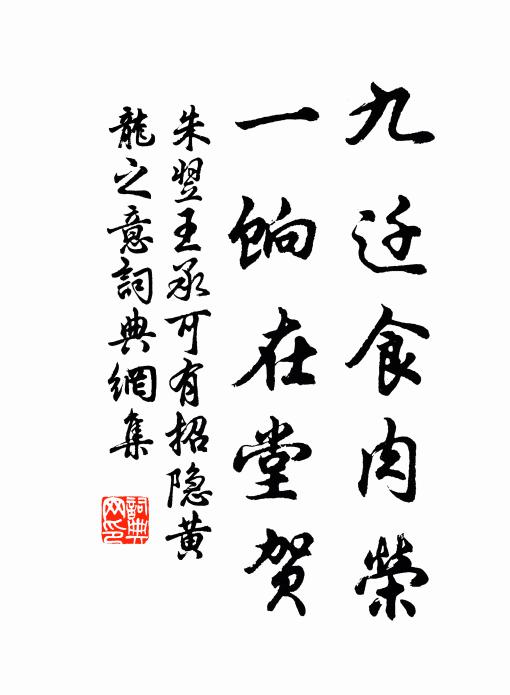 九迁食肉榮
一饷在堂贺
朱翌王承可有招隐黄
龍之意詞典網集
詞典网印